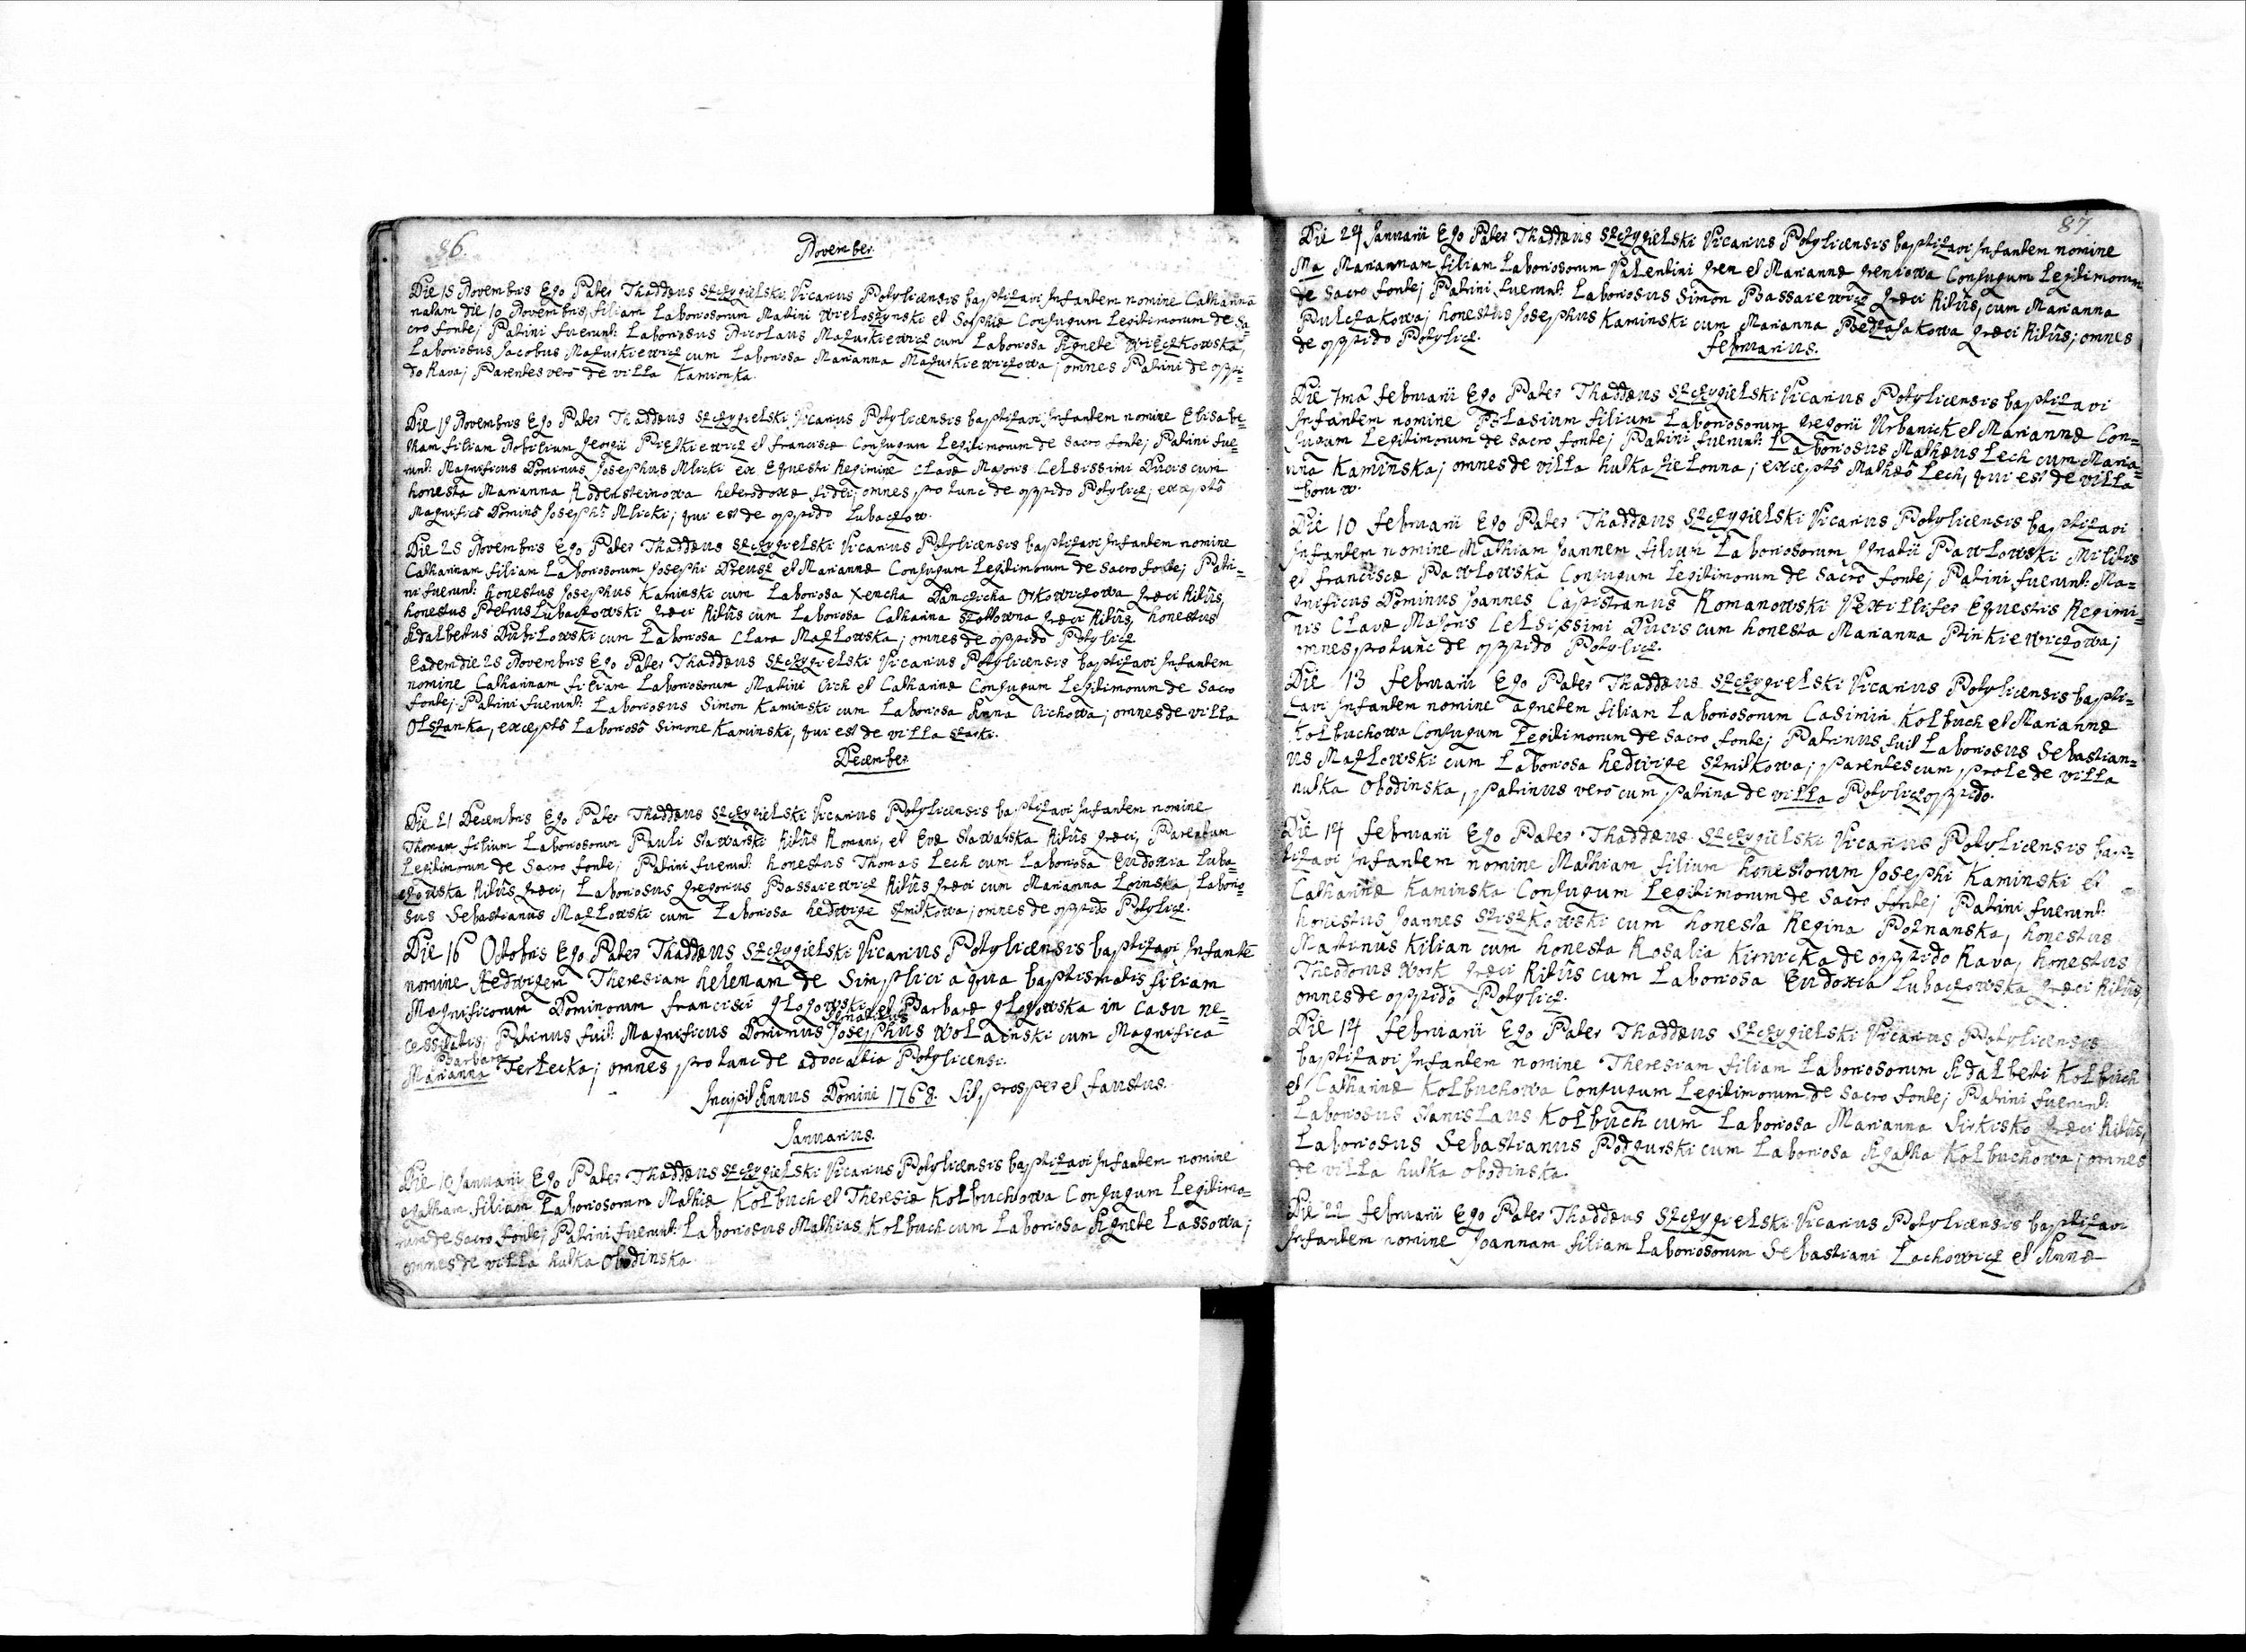 86.
November
Die 15 Novembris Ego Pater Thaddæus Szczygielski Vicarius Potylicensis baptizavi Infantem nomine Catharinã
natam die 10 Novembris, filiam Laboriosorum Matini Wieloszynski et Sophiæ Conjugum Legitimorum de Sa-
cro fonte; Patini fuerunt: Laboriosus Nicolaus Mazurkiewicz cum Laboriosa Agnete Więczkowska,
Laboriosus Jacobus Mazurkiewicz cum Laboriosa Marianna Mazurkiewiczowa; omnes Patini de oppi-
do Rava; Parentes verò de villa Kamionka.
Die 19 Novembris Ego Pater Thaddæus Szczygielski Vicarius Potylicensis baptizavi Infantem nomine Elisabe-
tham filiam Nobilium Georgii Pietkiewicz et Franciscæ Conjugum Legitimorum de Sacro fonte; Patini fue-
runt: Magnificus Dominus Josephus Mlicki ex Equestri Regimine Clavæ Majoris Celsissimi Ducis cum
honesta Marianna Rodensteinowa heterodoxæ fidei; omnes pro tunc de oppido Potylicz, exceptô
Magnificô Dominô Josephô Mlicki; qui est de oppido Lubaczow.
Die 25 Novembris Ego Pater Thaddæus Szczygielski Vicarius Potylicensis baptizavi Infantem nomine
Catharinam filiam Laboriosorum Josephi Dreusz et Mariannæ Conjugum Legitimorum de Sacro fonte; Patri-
ni fuerunt: honestus Josephus Kaminski cum Laboriosa Xencha Danczicha Orkowiczowa Græci Ritûs,
honestus Petrus Lubaczowski Græci Ritûs cum Laboriosa Catharina Szottowna Græci Ritûs, honestus
Adalbertus Dubilowski cum Laboriosa Clara Mazlowska; omnes de oppido Potylicz
Eadem die 25 Novembris Ego Pater Thaddæus Szczygielski Vicarius Potylicensis baptizavi Infantem
nomine Catharinam filiam Laboriosorum Matini Cich et Catharinæ Conjugum Legitimorum de Sacro
fonte; Patini fuerunt: Laboriosus Simon Kaminski cum Laboriosa Anna Cichowa; omnes de villa
Olszanka, exceptô Laboriosô Simone Kaminski, qui est de villa Szarki.
December
Die 21 Decembris Ego Pater Thaddæus Szczygielski Vicarius Potylicensis baptizavi Infantem nomine
Thomam filium Laboriosorum Pauli Stawarski Ritûs Romani, et Evæ Stawarska Ritûs Græci, Parentum
Legitimorum de Sacro fonte; Patini fuerunt: honestus Thomas Lech cum Laboriosa Eudoxia Luba-
czowska Ritûs Græci, Laboriosus Gregorius Bassaiewicz Ritûs Græci cum Marianna Loinska, Laborio-
sus Sebastianus Mazlowski cum Laboriosa hedwige Szmilkowa; omnes de oppido Potylicz.
Die 16 Octobris Ego Pater Thaddæus Szczygielski Vicarius Potylicensis baptizavi Infantẽ
nomine Hedwigem Theresiam helenam de Simplici aqua baptismatis filiam
Magnificorum Dominorum Francisci Glogowski et Barbaræ Glogowska in Casu ne-
Ignatius
cessitatis; Patrinus fuit: Magnificus Dominus Josephus Wolainski cum Magnifica
Barbara
Marianna Terlecka; omnes pro tunc de advocatia Potylicensi.
Incipit Annus Domini 1768. Sit prosper et faustus.
Januarius.
Die 10 Januarii Ego Pater Thaddæus Szczygielski Vicarius Potylicensis baptizavi Infantem nomine
agatham filiam Laboriosorum Mathiæ Kolbuch et Theresiæ Kolbuchowa Conjugum Legitimo-
rum de Sacro fonte; Patrini fuerunt: Laboriosus Mathias Kolbuch cum Laboriosa Agnete Lassowa;
omnes de villa hutka Obodinska.
87.
Die 24 Januarii Ego Pater Thaddæus Szczygielski Vicarius Potylicensis baptizavi Infantem nomine
Ma Mariannam filiam Laboriosorum Valentini Gren et Mariannæ Greniowa Conjugum Legitimorum
de Sacro fonte; Patrini fuerunt: Laboriosus Simon Bassaiewicz Græci Ritûs, cum Marianna
Pulczakowa; honestus Josephus Kaminski cum Marianna Predzajakowa Græci Ritûs; omnes
de oppido Potylicz.
Februarius.
Die 7mâ Februarii Ego Pater Thaddæus Szczygielski Vicarius Potylicensis baptizavi
Infantem nomine Blasium filium Laboriosorum Gregorii Urbanick et Mariannæ Con-
jugum Legitimorum de Sacro fonte; Patrini fuerunt: Laboriosus Mathæus Lech cum Maria-
nna Kaminska; omnes de villa hutka zielonna; exceptô Mathæô Lech, qui est de villa
boru w.
Die 10 Februarii Ego Pater Thaddæus Szczygielski Vicarius Potylicensis baptizavi
Infantem nomine Mathiam Joannem filium Laboriosorum Ignatii Pawlowski Militis
et Franciscæ Pawlowska Conjugum Legitimorum de Sacro fonte; Patrini fuerunt: Ma-
gnificus Dominus Joannes Capistranus Romanowski Vexillifer Equestris Regimi-
nis Clavæ Majoris Celsissimi Ducis cum honesta Marianna Pinkiewiczowa;
omnes pro tunc de oppido Potylicz.
Die 13 Februarii Ego Pater Thaddæus Szczygielski Vicarius Potylicensis bapti-
zavi Infantem nomine agnetem filiam Laboriosorum Casimiri Kolbuch et Mariannæ
Kolbuchowa Conjugum Legitimorum de Sacro fonte; Patrinus fuit Laboriosus Sebastian-
us Mazlowski cum Laboriosa hedwige Szmilkowa; parentes cum prole de villa
hutka Obodinska, patrinus verò cum patrina de villa Potylicz oppido.
Die 14 Februarii Ego Pater Thaddæus Szczygielski Vicarius Potylicensis bap-
tizavi Infantem nomine Mathiam filium honestorum Josephi Kaminski et
Catharinæ Kaminska Conjugum Legitimorum de Sacro fonte; Patrini fuerunt:
honestus Joannes Szyszkowski cum honesta Regina Poznanska, honestus
Matinus Kilian cum honesta Rosalia Kirnicka de oppido Rava, honestus
Theodorus Work Græci Ritûs cum Laboriosa Eudoxia Lubaczowska Græci Ritûs;
omnes de oppidô Potylicz.
Die 14 Februarii Ego Pater Thaddæus Szczygielski Vicarius Potylicensis
baptizavi Infantem nomine Theresiam filiam Laboriosorum Adalberti Kolbuch
et Catharinæ Kolbuchowa Conjugum Legitimorum de Sacro fonte; Patrini fuerunt:
Laboriosus Stanislaus Kolbuch cum Laboriosa Marianna Sirkisko Græci Ritûs,
Laboriosus Sebastianus Podgurski cum Laboriosa Agatha Kolbuchowa; omnes
de villa hutka obodinska.
Die 22 Februarii Ego Pater Thaddæus Szczygielski Vicarius Potylicensis baptizavi
Infantem nomine Joannam filiam Laboriosorum Sebastiani Lachowicz et Annæ